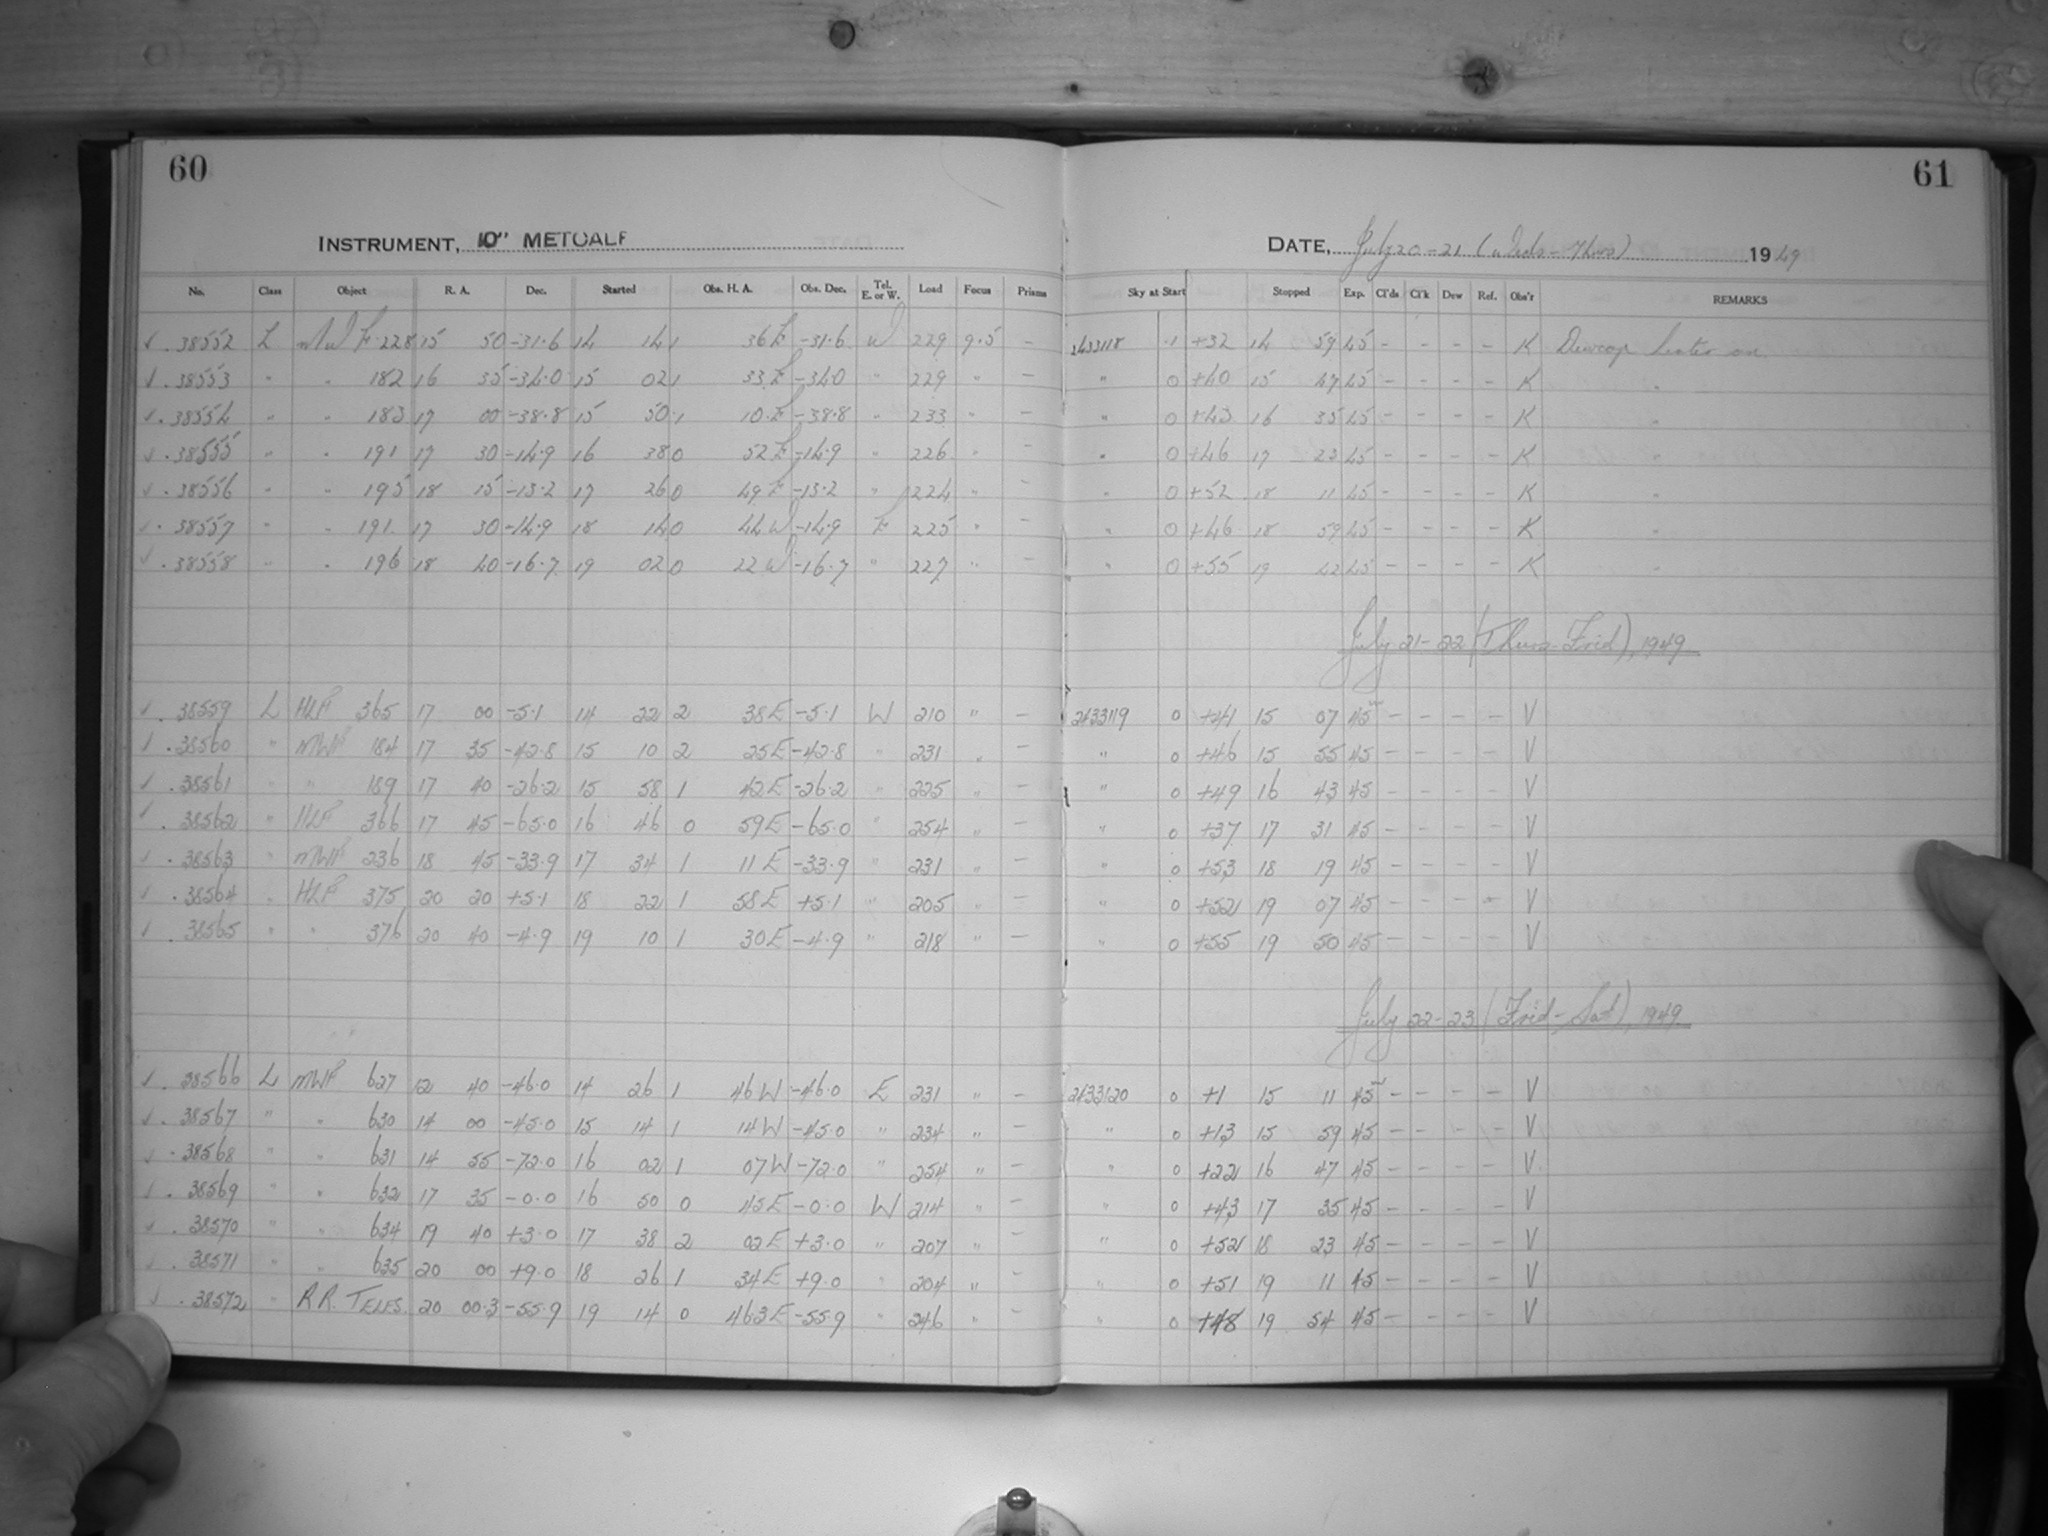 60
61
INSTRUMENT, 10" METCALF
DATE, July 20-21 (Weds-Thurs) 1949
No. Class Object R. A. Dec. Started Obs. H. A. Obs. Dec. Tel. E. or W. Load Focus Prisms Sky at Start Stopped Exp. Cl'ds Cl'k Dew Ref. Obs'r REMARKS
✓ . 38552 L MWF 228 15 50 -31.6 14 14 1 36 E -31.6 W 229 9.5 - 2433118 .1 +32 14 59 45 - - - - K Dewcap heater on
✓ . 38553 " " 182 16 35 -34.0 15 02 1 33 E -34.0 " 229 " - " 0 +40 15 47 45 - - - - K "
✓ . 38554 " " 183 17 00 -38.8 15 50 1 10 E -38.8 " 233 " - " 0 +43 16 35 45 - - - - K "
✓ . 38555 " " 191 17 30 -14.9 16 38 0 52 E -14.9 " 226 " - " 0 +46 17 23 45 - - - - K "
✓ . 38556 " " 195 18 15 -13.2 17 26 0 49 E -13.2 " 224 " - " 0 +52 18 11 45 - - - - K "
✓ . 38557 " " 191 17 30 -14.9 18 14 0 44 W -14.9 E 225 " - " 0 +46 18 59 45 - - - - K "
✓ . 38558 " " 196 18 40 -16.7 19 02 0 22 W -16.7 " 227 " - " 0 +55 19 45 - - - - K "
July 21-22 (Thurs-Frid), 1949
✓ . 38559 L HLF 365 17 00 -5.1 14 22 2 38 E -5.1 W 210 " - 2433119 0 +41 15 07 45 - - - - V
✓ . 38560 " MWF 184 17 35 -42.8 15 10 2 25 E -42.8 " 231 " - " 0 +46 15 55 45 - - - - V
✓ . 38561 " " 189 17 40 -26.2 15 58 1 42 E -26.2 " 225 " - " 0 +49 16 43 45 - - - - V
✓ . 38562 " HLF 366 17 45 -65.0 16 46 0 59 E -65.0 " 254 " - " 0 +37 17 31 45 - - - - V
✓ . 38563 " MWF 236 18 45 -33.9 17 34 1 11 E -33.9 " 231 " - " 0 +53 18 19 45 - - - - V
✓ . 38564 " HLF 375 20 20 +5.1 18 22 1 58 E +5.1 " 205 " - " 0 +52 19 07 45 - - - - V
✓ . 38565 " " 376 20 40 -4.9 19 10 1 30 E -4.9 " 218 " - " 0 +55 19 50 45 - - - - V
July 22-23 (Frid-Sat), 1949
✓ . 38566 L MWF 627 12 40 -46.0 14 26 1 46 W -46.0 E 231 " - 2433120 0 +1 15 11 45 - - - - V
✓ . 38567 " " 630 14 00 -45.0 15 14 1 14 W -45.0 " 234 " - " 0 +13 15 59 45 - - - - V
✓ . 38568 " " 631 14 55 -72.0 16 02 1 07 W -72.0 " 254 " - " 0 +22 16 47 45 - - - - V
✓ . 38569 " " 632 17 35 -0.0 16 50 0 45 E -0.0 W 214 " - " 0 +43 17 35 45 - - - - V
✓ . 38570 " " 634 19 40 +3.0 17 38 2 02 E +3.0 " 207 " - " 0 +52 18 23 45 - - - - V
✓ . 38571 " " 635 20 00 +9.0 18 26 1 34 E +9.0 " 204 " - " 0 +51 19 11 45 - - - - V
✓ . 38572 " R.R. TELES. 20 00.3 -55.9 19 14 0 46.3 E -55.9 " 246 " - " 0 +48 19 54 45 - - - - V